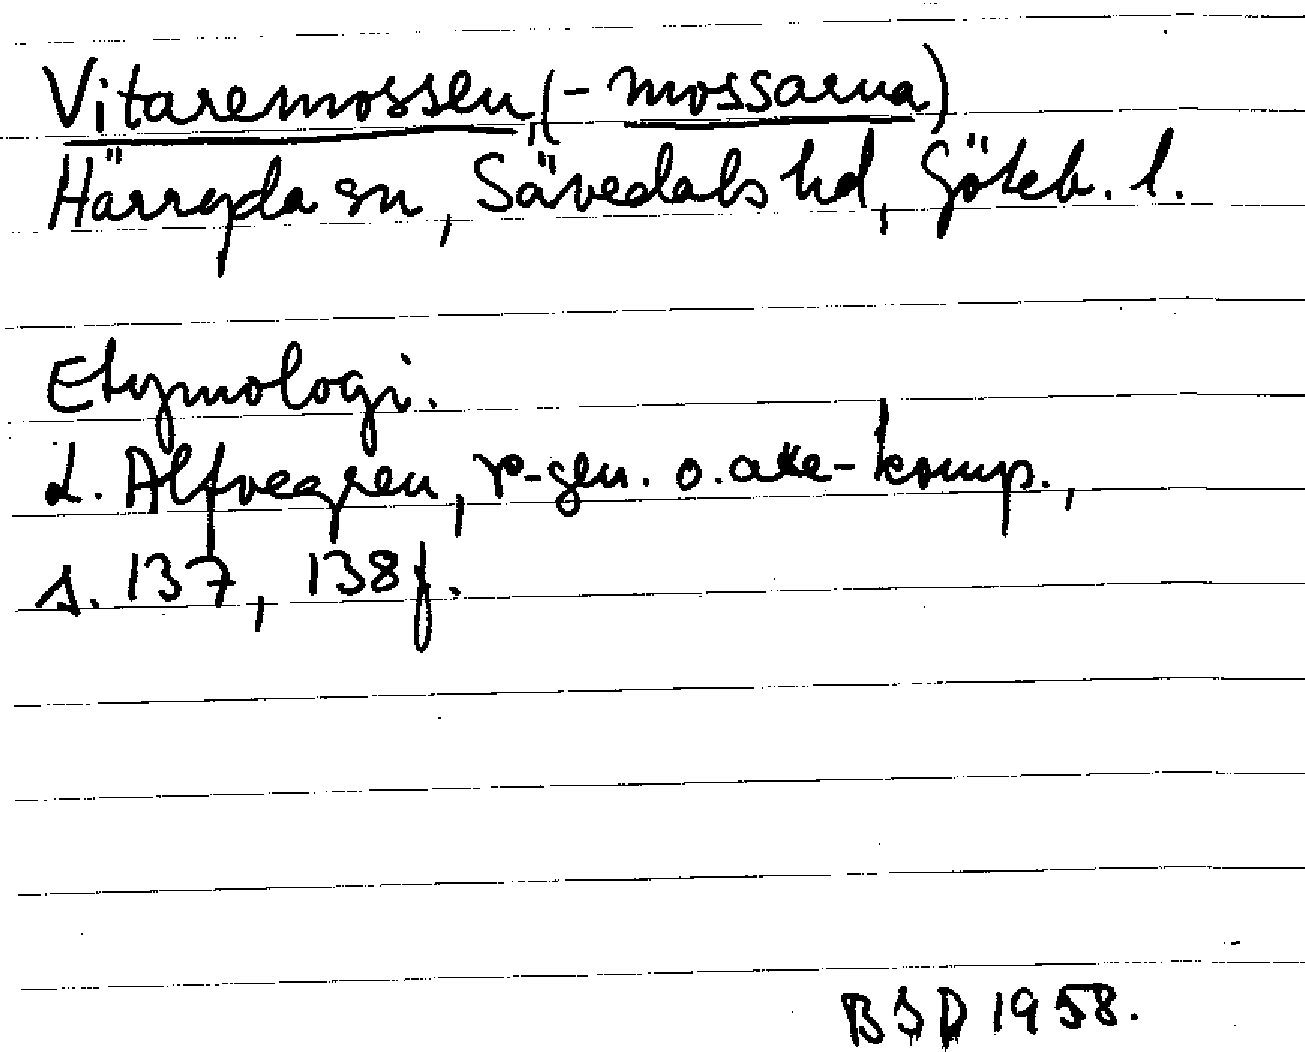 Vitaremossen, (-mossarna)
Härryda sn, Sävedals hd, Göteb. l.
Etymologi.
L. Alfvegren, r-gen. o. are-komp.,
s. 137, 138 f.
BSD 1958.